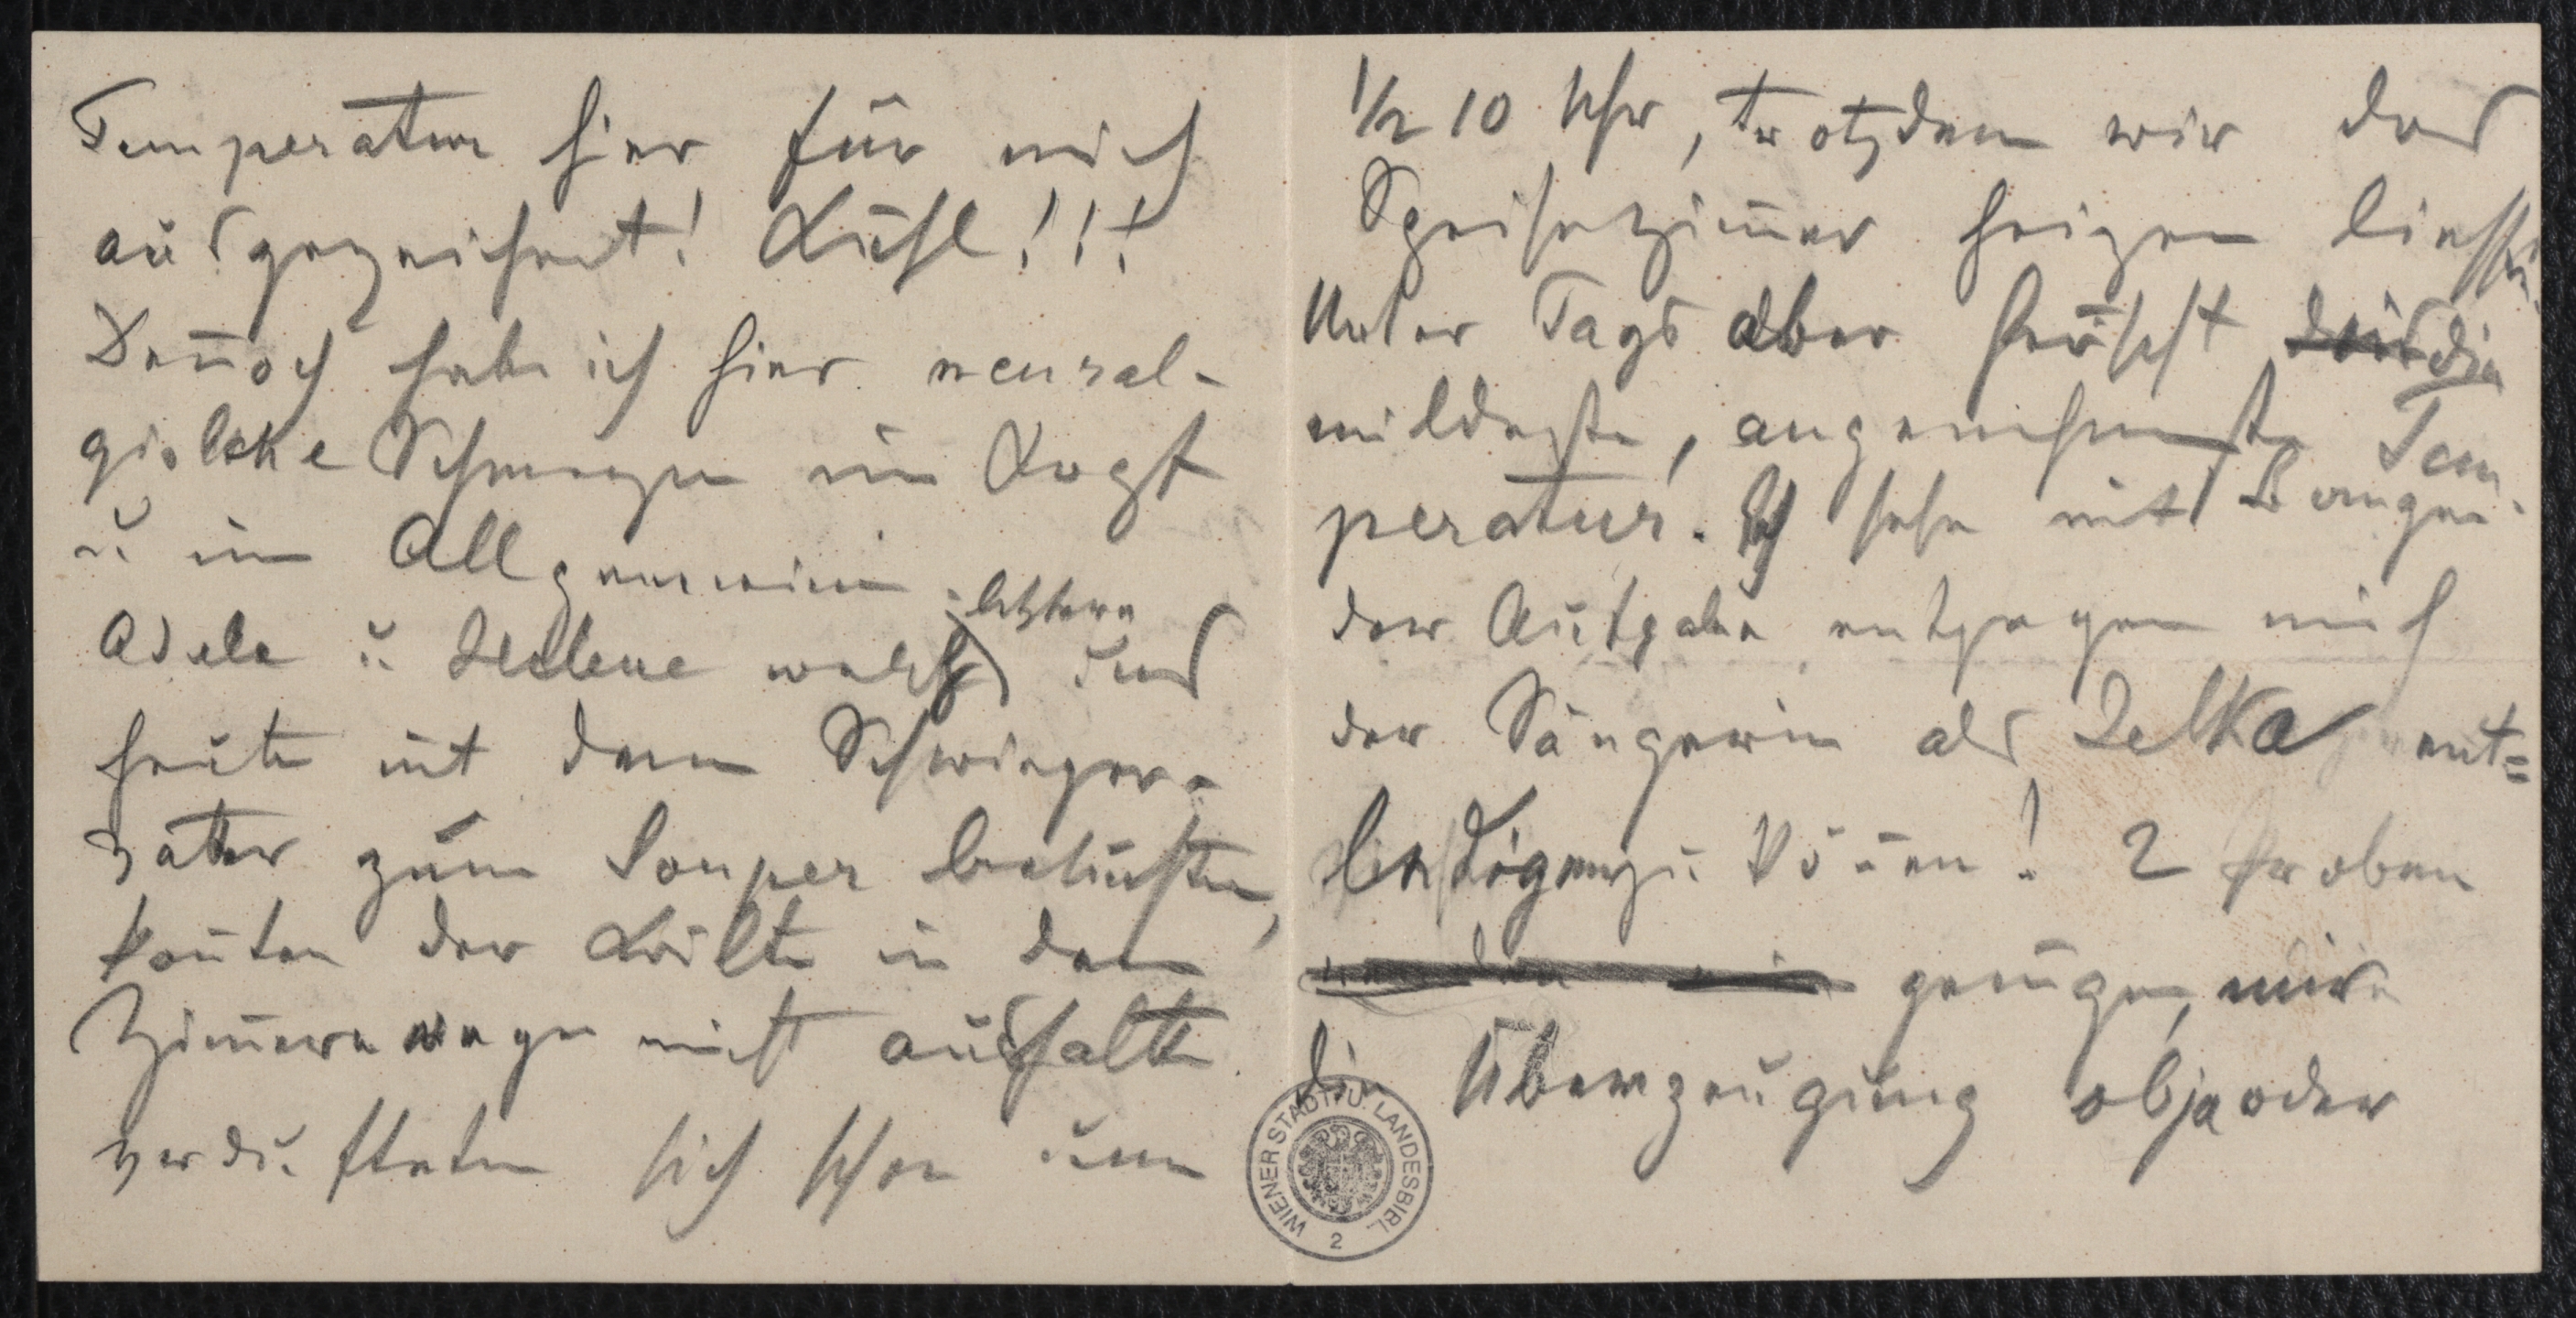 Temperatur hier für mich
ausgezeichnet! Kühl!!!
Deñoch habe ich hier neural-
gische Schmerzen im Kopf
u im Allgemeinen.
Adele u Helene welch letztere uns
heute mit dem Schwieger-
vater zum Souper besuchten,
koñten der Kälte in den
Zim̄ern wegen nicht aushalten
verdufteten sich schon um
1/2 10 Uhr, trotzdem wir das
Speisezim̄er heizen liessen.
Unter Tags aber herrscht die
mildeste, angenehmste Tem-
peratur. Ich sehe mit Bangen
der Aufgabe entgegen mich
der Sängerin als Jelka ent=
ledigen zu köñen! 2 Proben
genügen, mir
die Überzeugung ob ja oder
WIENER STADT- U. LANDESBIBL.
2